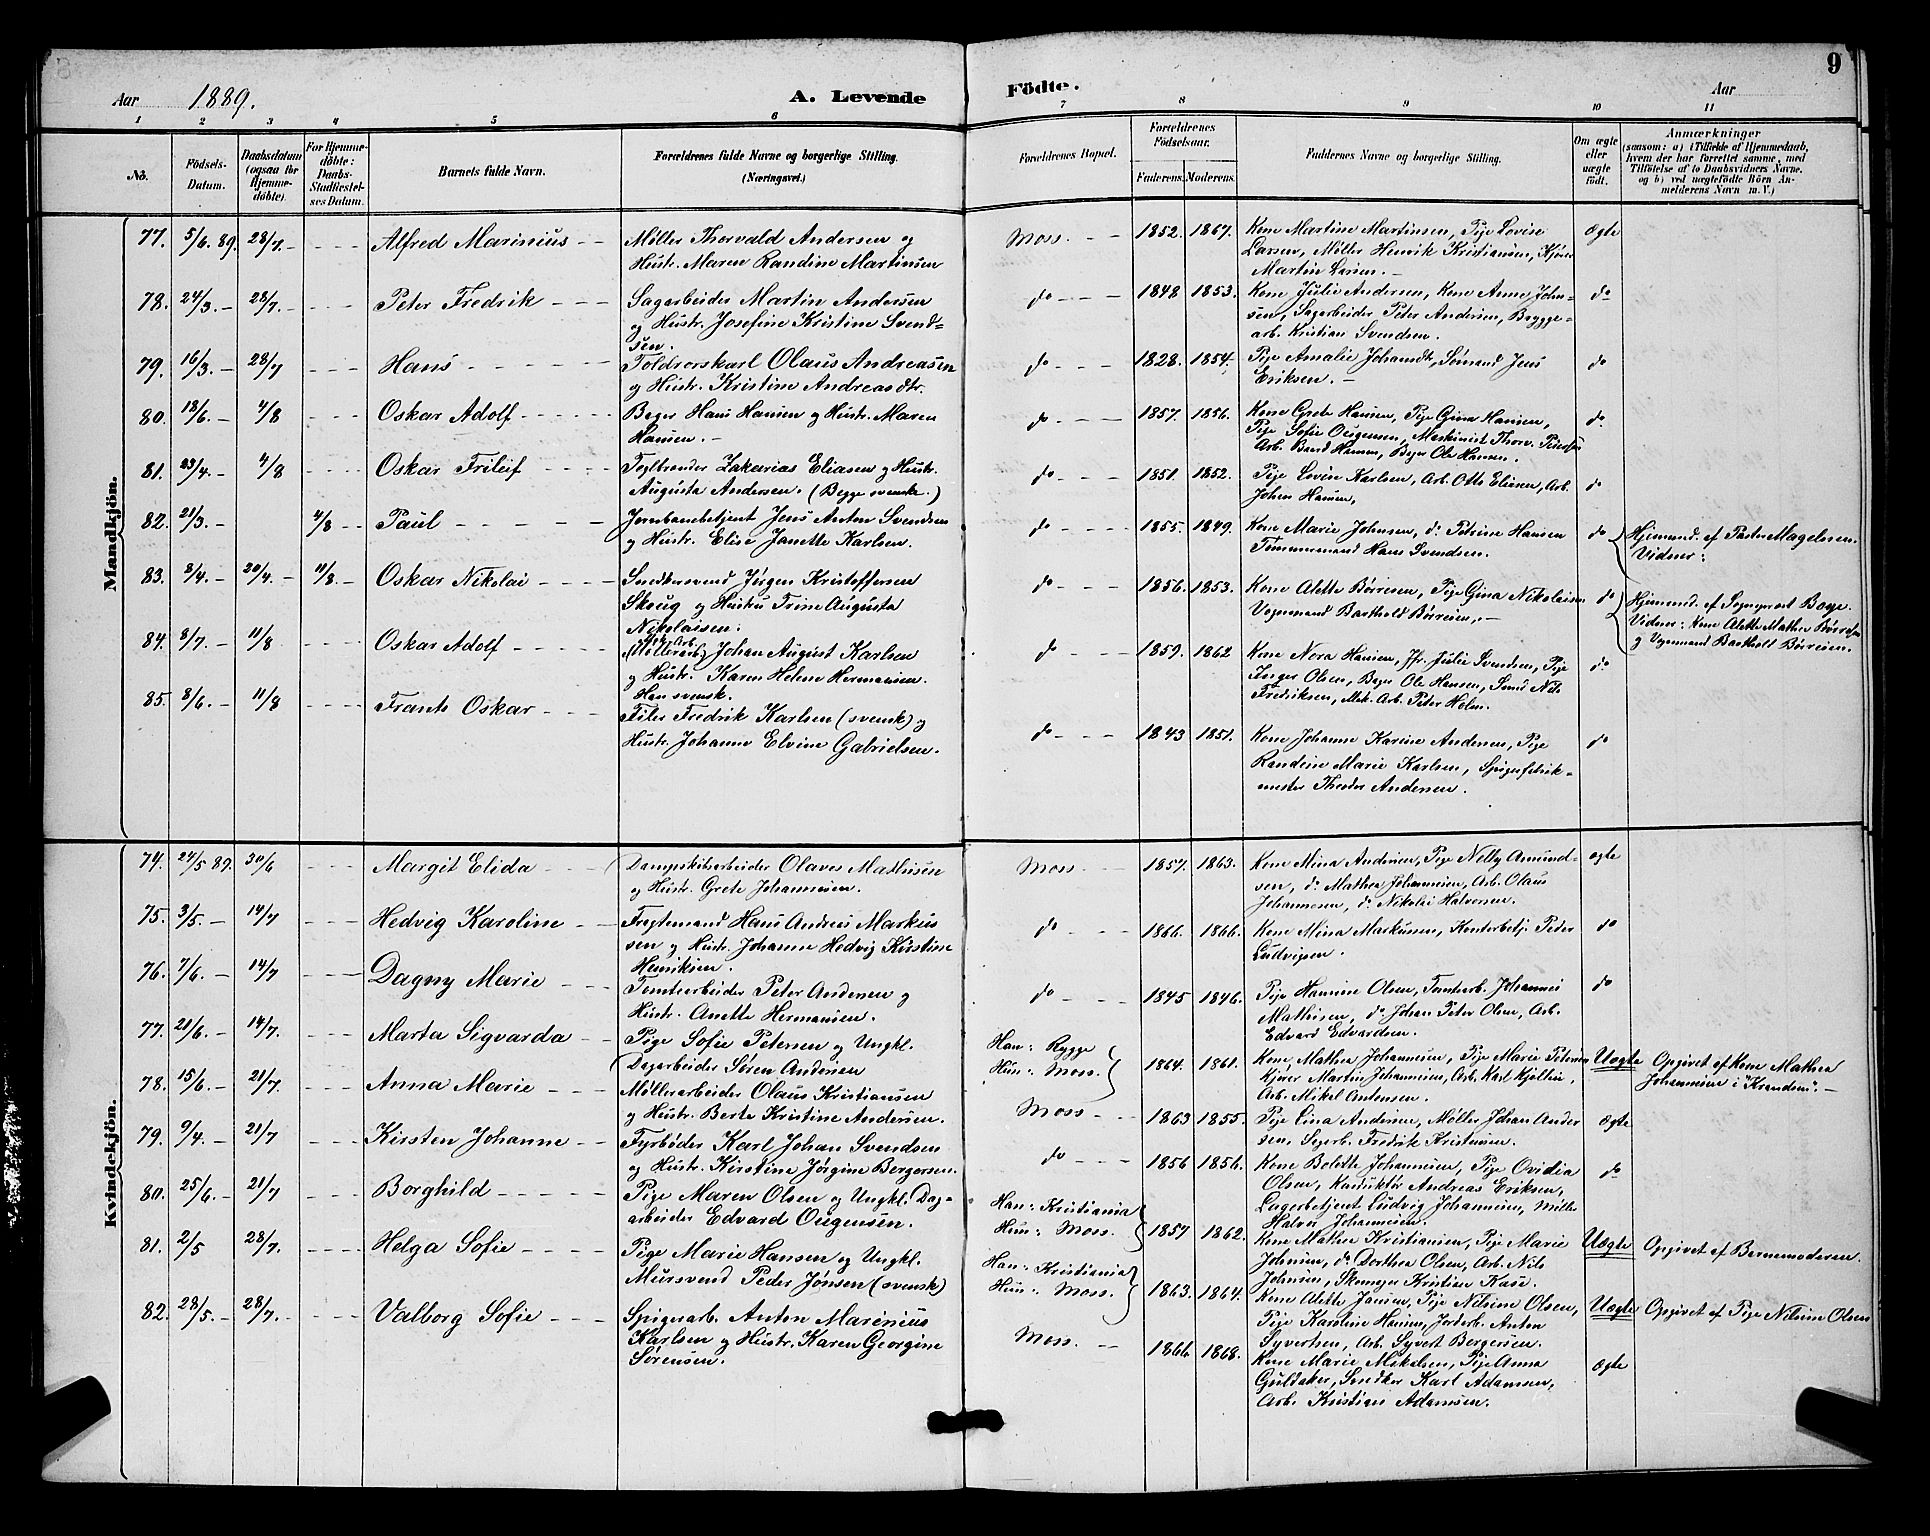 9
Aar 1889. A. Levende Födte. Aar
1 2 3 4 5 6 7 8 9 10 11
No. Födsels-Datum. Daabsdatum (ogsaa for Hjemmedöbte). For Hjemmedöbte: Daabs-Stadfæstelses Datum. Barnets fulde Navn. Forældrenes fulde Navne og borgerlige Stilling. (Næringsvei.) Forældrenes Bopæl. Forældrenes Födselsaar. Faderens. Moderens. Faddernes Navne og borgerlige Stilling. Om ægte eller uægte födt. Anmærkninger (saasom: a) i Tilfælde af Hjemmedaab, hvem der har forrettet samme, med Tilföielse af to Daabsvidners Navne. og b) ved uægtefödte Börn Anmelderens Navn m. V.)
Mandkjön.
77. 5/6. 89. 28/7. - Alfred Marinius Møller Thorvald Andersen og Moss. 1852. 1867. Kone Martine Martinsen, Pige Lovise Ægte
Hustr. Maren Randine Martinsen Larsen, Møller Henrik Kristiansen, Kjører
Martin Larsen. -
78. 24/3. - 28/7. Peter Fredrik Sagarbeider Martin Andersen do 1848 1853. Kone Julie Andersen, Kone Anne John- do
og Hustr. Josefine Kristine Svend- sen, Sagarbeider Peter Andersen, Brygge-
sen. arb. Kristian Svendsen.
79. 16/3. - 28/7 Hans Toldrorskarl Olaus Andreasen do 1828. 1854. Pige Amalie Johansdt, Sømand Jens do
og Hustr. Kristine Andreasdtr. Eriksen. -
80. 18/6. - 4/8 Oskar Adolf Bager Hans Hansen og Hustr. Maren do 1857. 1856. Kone Grete Hansen, Pige Gina Hansen, do
Hansen. - Pige Sofie Ougensen, Maskinist Thorv. Petersen
Arb. Bernt Hansen, Bager Ole Hansen.
81. 23/4. - 4/8 Oskar Frileif Teglbrænder Zakarias Eliasen og Hustr. do 1851. 1852. Pige Lovise Karlsen, Arb. Otto Eliesen, Arb. do
Augusta Andersen. (Begge svenske.) Johan Hansen,
82. 21/3. - 4/8 Paul Jernbanebetjent Jens Anton Svendsen do 1855. 1849. Kone Marie Johnsen, do Petrine Hansen do Hjemmed. af Pastor Magelssen.
og Hustr. Elise Janette Karlsen. Tømmermand Hans Svendsen. Vidner:
83. 8/4. - 20/4. - 11/8. Oskar Nikolai Snedkersvend Jørgen Kristoffersen do 1856. 1853. Kone Alette Børresen, Pige Gina Nikolaisen do Hjemmed. af Sogneprest Boye.
Skoug og Hustru Trine Augusta Vognmand Barthold Børresen. - Vidner: Kone Alette Mathea Børresen
Nikolaisen. og Vognmand Barthold Børresen.
84. 8/7. - 11/8 Oskar Adolf (Møllerarb.) Johan August Karlsen do 1859. 1862 Kone Nora Hansen, Jfr. Julie Svendsen, Pige do
og Hustr. Karen Helene Hermansen. Inger Olsen, Bager Ole Hansen, Smed Nils
Han svensk. Fredriksen, Mek. Arb. Peter Holm.
85. 8/6. - 11/8 Frants Oskar Filer Fredrik Karlsen (svensk) og do 1843 1851. Kone Johanne Karine Andersen, Pige do
Hustr. Johanne Elvine Gabrielsen. Randine Marie Karlsen, Spigerfabrik-
mester Theodor Andersen.
Kvindekjön.
74. 24/5 89. 30/6 Margit Elida Dampskibsarbeider Olaves Mathisen Moss 1857. 1863. Kone Mina Andersen, Pige Nelly Amund- ægte
og Hustr. Grete Johannesen. sen, do Mathea Johannesen, Arb. Olaus
Johannesen, do Nikolai Halvorsen.
75. 3/5. - 14/7 Hedvig Karoline Fragtemand Hans Andreas Markus do 1866. 1866. Kone Mina Markussen, Kontorbetj. Peter do
sen og Hustr. Johanne Hedvig Kirstine Ludvigsen.
Henriksen.
76. 7/6. - 14/7 Dagny Marie Tomtearbeider Peter Andersen og do 1845 1846. Pige Hannine Olsen, Tomtearb. Johannes do
Hustr. Anette Hermansen. Mathisen, do Johan Peter Olsen, Arb.
Edvard Edvardsen.
77. 21/6. - 14/7. Marta Sigvarda Pige Sofie Petersen og Ungkl. Han: Rygge 1864. 1861. Kone Mathea Johannesen, Pige Marie Petersen Uægte Opgivet af Kone Mathea
Dagarbeider Søren Andersen Hun: Moss. Kjører Martin Johannesen, Arb. Karl Kjøllen, Johannesen i "Kranden". -
Arb. Mikal Antonsen.
78. 15/6. - 21/7. Anna Marie Møllerarbeider Olaus Kristiansen Moss 1863 1855. Pige Lina Andersen, Møller Johan Ander ægte
og Hustr. Berte Kristine Andersen. sen, Sagarb. Fredrik Kristiansen.
79. 9/4. - 21/7 Kirsten Johanne Fyrbøder Karl Johan Svendsen do 1856 1856. Kone Bolette Johannesen, Pige Ovidia do
og Hustr. Kirstine Jørgine Bergersen. Olsen, Konduktør Andreas Eriksen,
Lagerbetjent Ludvig Johannesen, Møller
Halvor Johannesen.
80. 25/6. - 21/7 Borghild Pige Maren Olsen og Ungkl. Dag- Han: Kristiania 1857 1862. Kone Mathea Kristiansen, Pige Marie Uægte Opgivet af Barnemoderen.
arbeider Edvard Ougensen. Hun: Moss. Johnsen, do Dorthea Olsen, Arb. Nils
Johnsen, Skomager Kristian Kase.
81. 2/5 28/7. Helga Sofie Pige Marie Hansen og Ungkl. Han: Kristiania 1863. 1864. Kone Alette Jansen, Pige Nilsine Olsen, Uægte Opgivet af Pige Nilsine Olsen
Mursvend Peder Jonsen (svensk) Hun: Moss. Pige Karoline Hansen, Jordarb. Anton
Syvertsen, Arb. Syvert Bergersen.
82. 28/5. - 28/7. Valborg Sofie Spigerarb. Anton Marinius Moss. 1866 1868. Kone Marie Mikalsen, Pige Anna ægte
Karlsen og Hustr. Karen Georgine Guldaker, Snedker Karl Adamsen,
Sørensen. Arb. Kristian Adamsen.